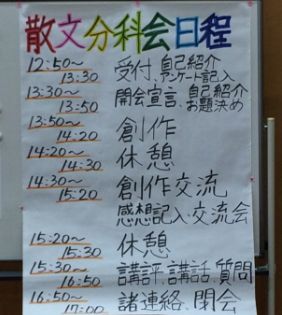 散文分科会日程
12:50～ 受付、自己紹介
13:30 アンケート記入
13:30～ 開会宣言、自己紹介
13:50 お題決め
13:50～ 創作
14:20
14:20～ 休憩
14:30
14:30～ 創作交流
15:20
感想記入、交流会
15:20～ 休憩
15:30
15:30～ 講評、講話、質問
16:50
16:50～ 諸連絡、閉会
17:00